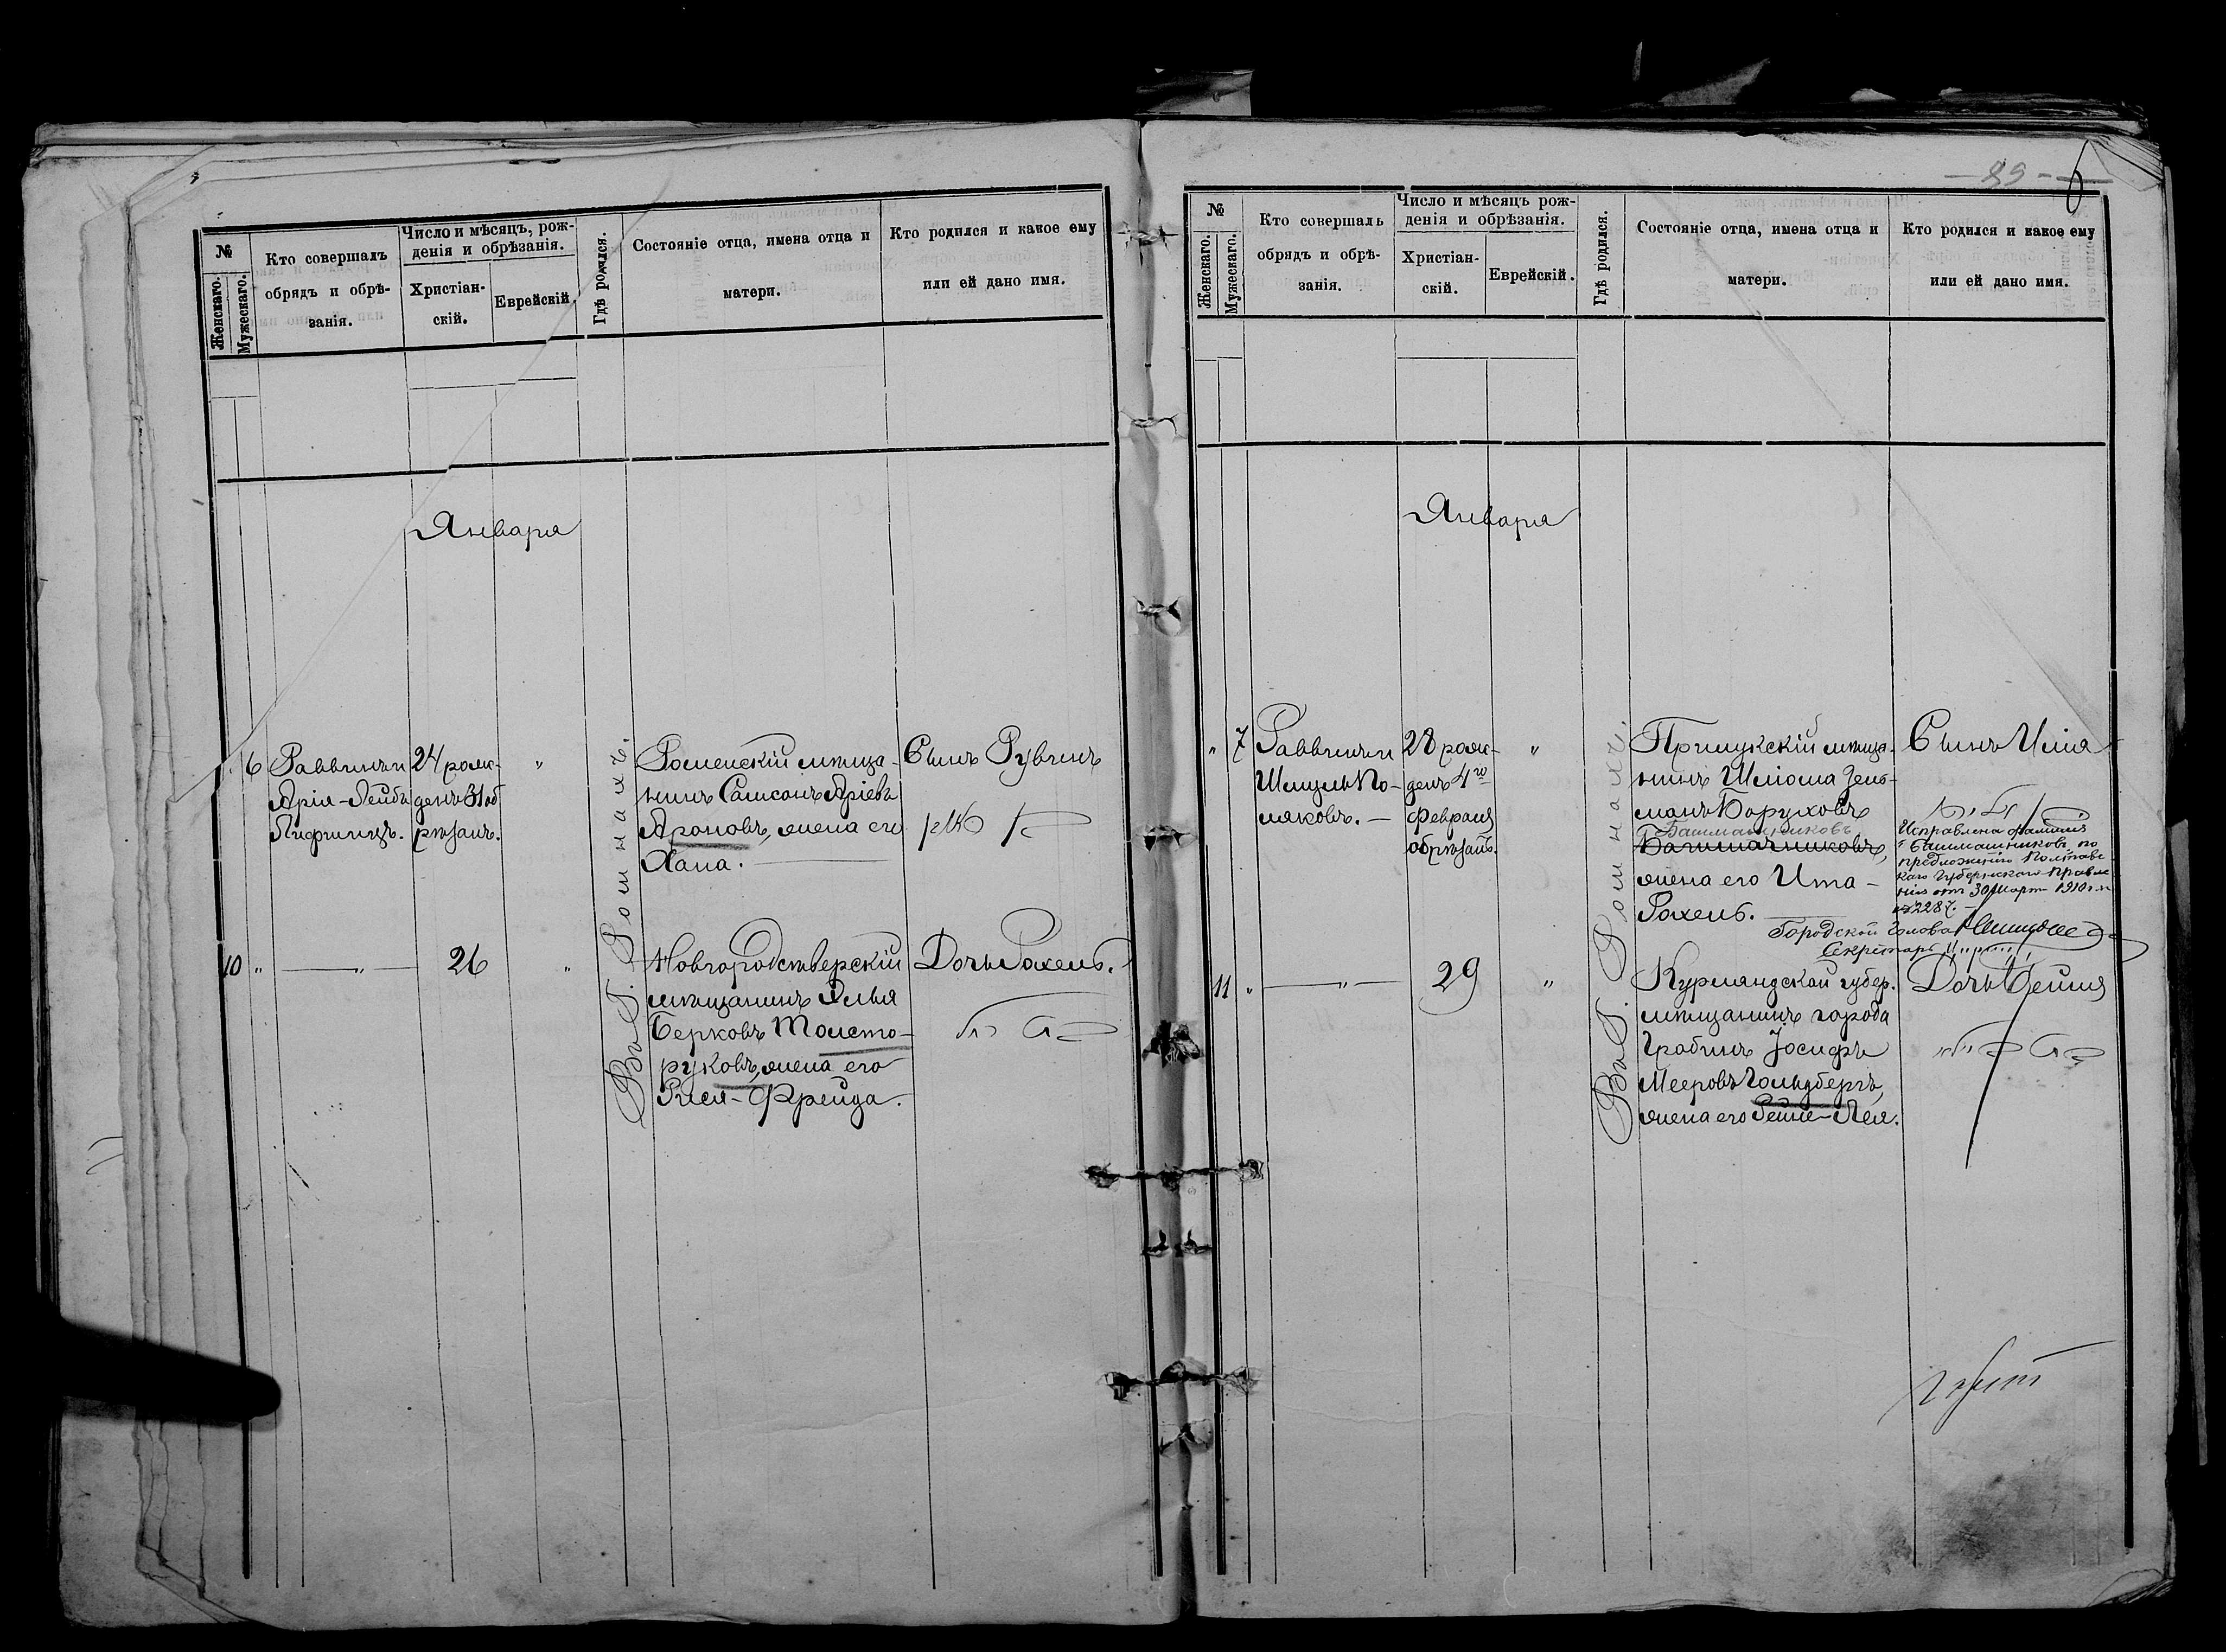 №
Женскаго.
Мужескаго.
Кто совершалъ
обрядъ и обрѣ-
занія.
Число и мѣсяцъ, рож-
денія и обрѣзанія.
Христіан-
скій.
Еврейскій.
Гдѣ родился.
Состояніе отца, имена отца и
матери.
Кто родился и какое ему
или ей дано имя.
Января
6
Раввинъ и
Арія-Лейба
Лифшицъ.
24 рож-
денъ 31 об
рѣзанъ.
"
Въ Г. Ромнахъ.
Роменскій мѣща-
нинъ Самсонъ Аріевъ
Ароновъ, жена его
Хана.
Сынъ Рувинъ
10 "
"
26
"
Новгородсѣверскій
мѣщанинъ Илья
Берковъ Толсто-
руковъ, жена его
Рися-Фрейда.
Дочь Рахель.
- 89 -
6
№
Женскаго.
Мужескаго.
Кто совершалъ
обрядъ и обрѣ-
занія.
Число и мѣсяцъ рож-
денія и обрѣзанія.
Христіан-
скій.
Еврейскій.
Гдѣ родился.
Состояніе отца, имена отца и
матери.
Кто родился и какое ему
или ей дано имя.
Января
" 7
Раввинъ и
Шмуль По-
ляковъ. —
28 рож-
денъ 4го
Февраля
обрѣзанъ.
"
Въ Г. Ромнахъ.
Прилукскій мѣща-
нинъ Шліома Зель-
манъ Боруховъ
Башмашниковъ
Башмачниковъ,
жена его Ита-
Рахель.
Сынъ Илія
Исправлена фамилія
"Башмашниковъ" по
предложенію Полтавс
каго Губернскаго Правле
нія отъ 30 Март 1910 г. за
№2287.
Городской Голова
Секретарь
11 "
"
29
"
Курляндской губер.
мѣщанинъ города
Гробинъ Іосифъ
Мееровъ Гольдбергъ,
жена его Рейне-Лея.
Дочь Бейля